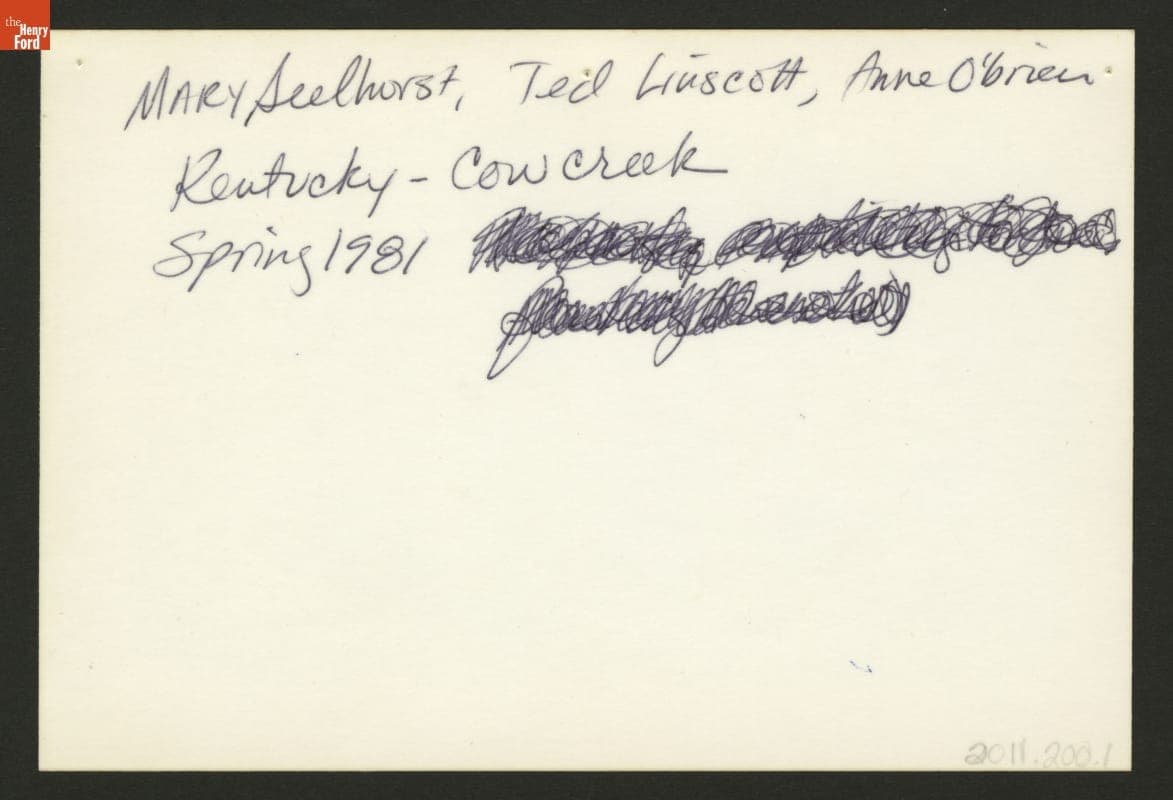 the
Henry
Ford
MARY Seelhorst, Ted Linscott, Anne O'brien
Kentucky - Cow creek
Spring 1981
2011.200.1